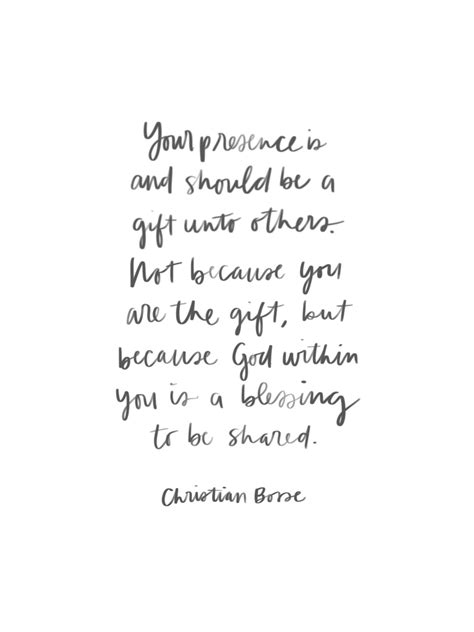 Your presence is
and should be a
gift unto others.
Not because you
are the gift, but
because God within
you is a blessing
to be shared.
Christian Bosse